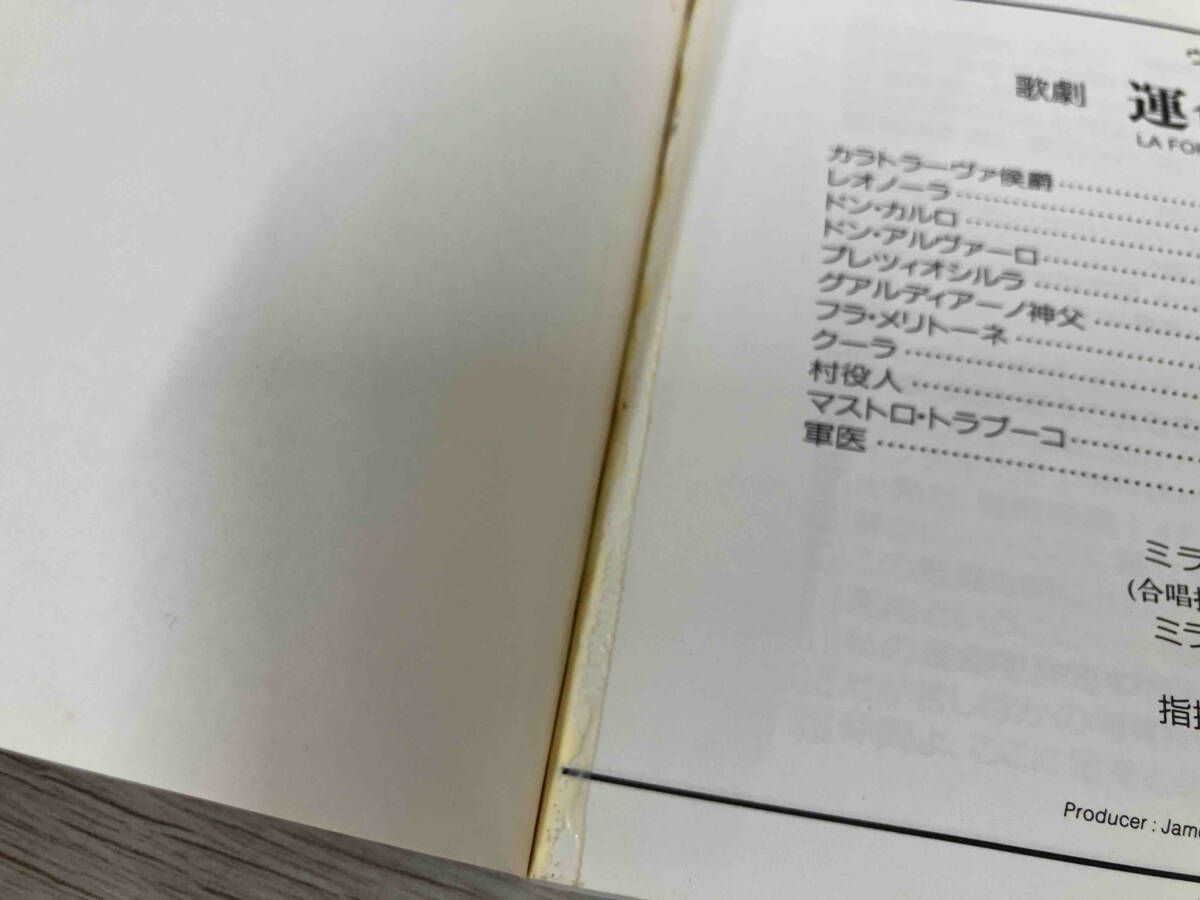 歌劇 運
LA FOR
カラトラーヴァ侯爵
レオノーラ
ドン・カルロ
ドン・アルヴァーロ
プレツィオシルラ
グアルディアーノ神父
フラ・メリトーネ
クーラ
村役人
マストロ・トラブーコ
軍医
ミラ
(合唱指
ミラ
指揮
Producer : Jame